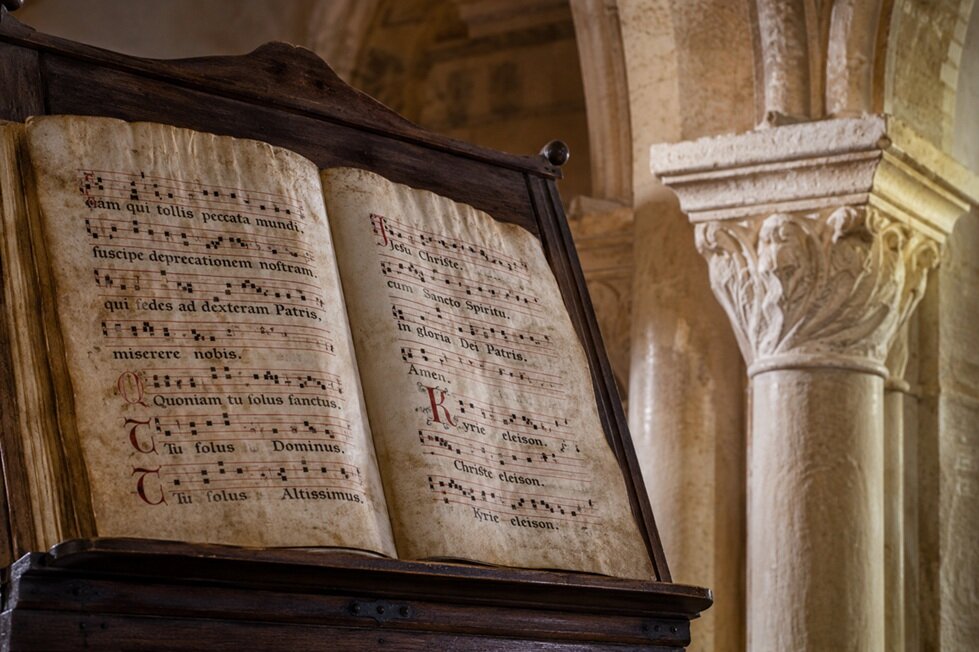 Eam qui tollis peccata mundi.
ſuscipe deprecationem noſtram.
qui ſedes ad dexteram Patris,
miserere nobis.
Quoniam tu ſolus ſanctus.
Tu ſolus Dominus.
Tu ſolus Altissimus.
Jesu Chriſte.
cum Sancto Spiritu.
in gloria Dei Patris.
Amen.
Kyrie eleison.
Chriſte eleison.
Kyrie eleison.